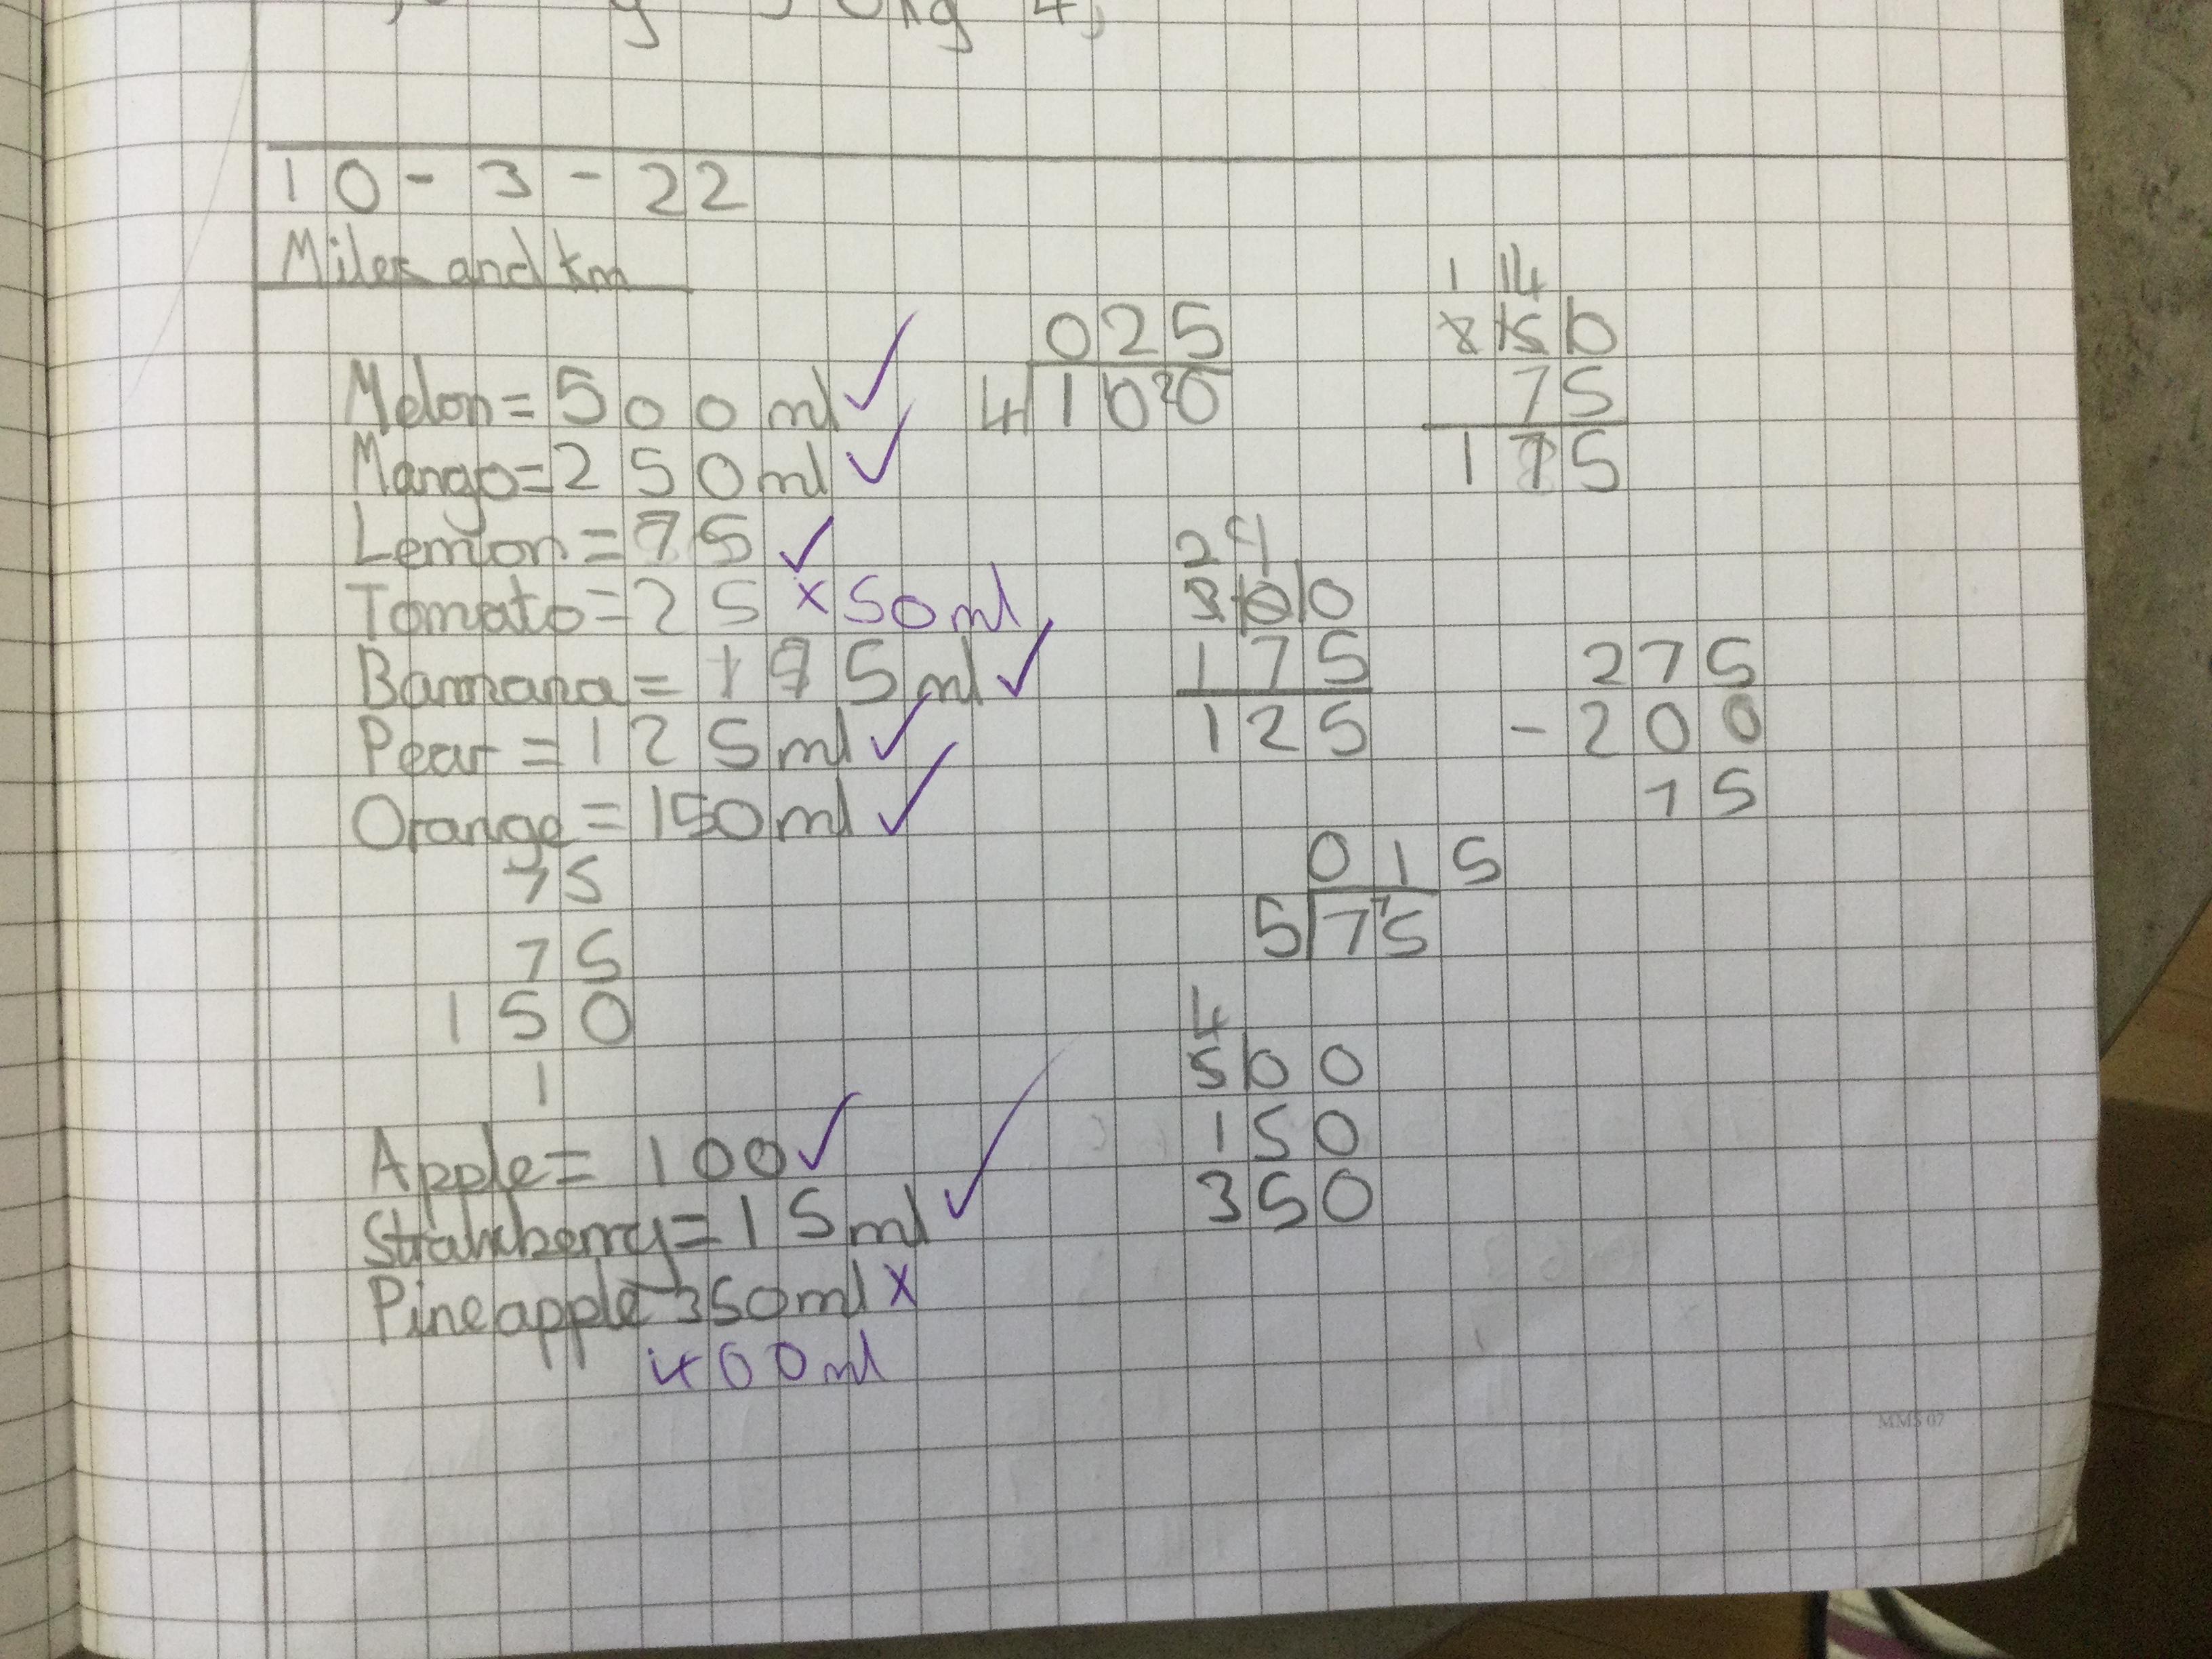 10-3-22
Miles and km
Melon=500ml
Mango=250ml
Lemon=75
Tomato=25 x 50ml
Bannana=175ml
Pear=125ml
Orange=150ml
75
75
150
1
Apple=100
Strawberry=15ml
Pineapple 350ml x
400ml
025
4 1020
1 14
250
75
175
2 9
300
175
125
275
-200
75
015
5 75
4
500
150
350
MMS 07